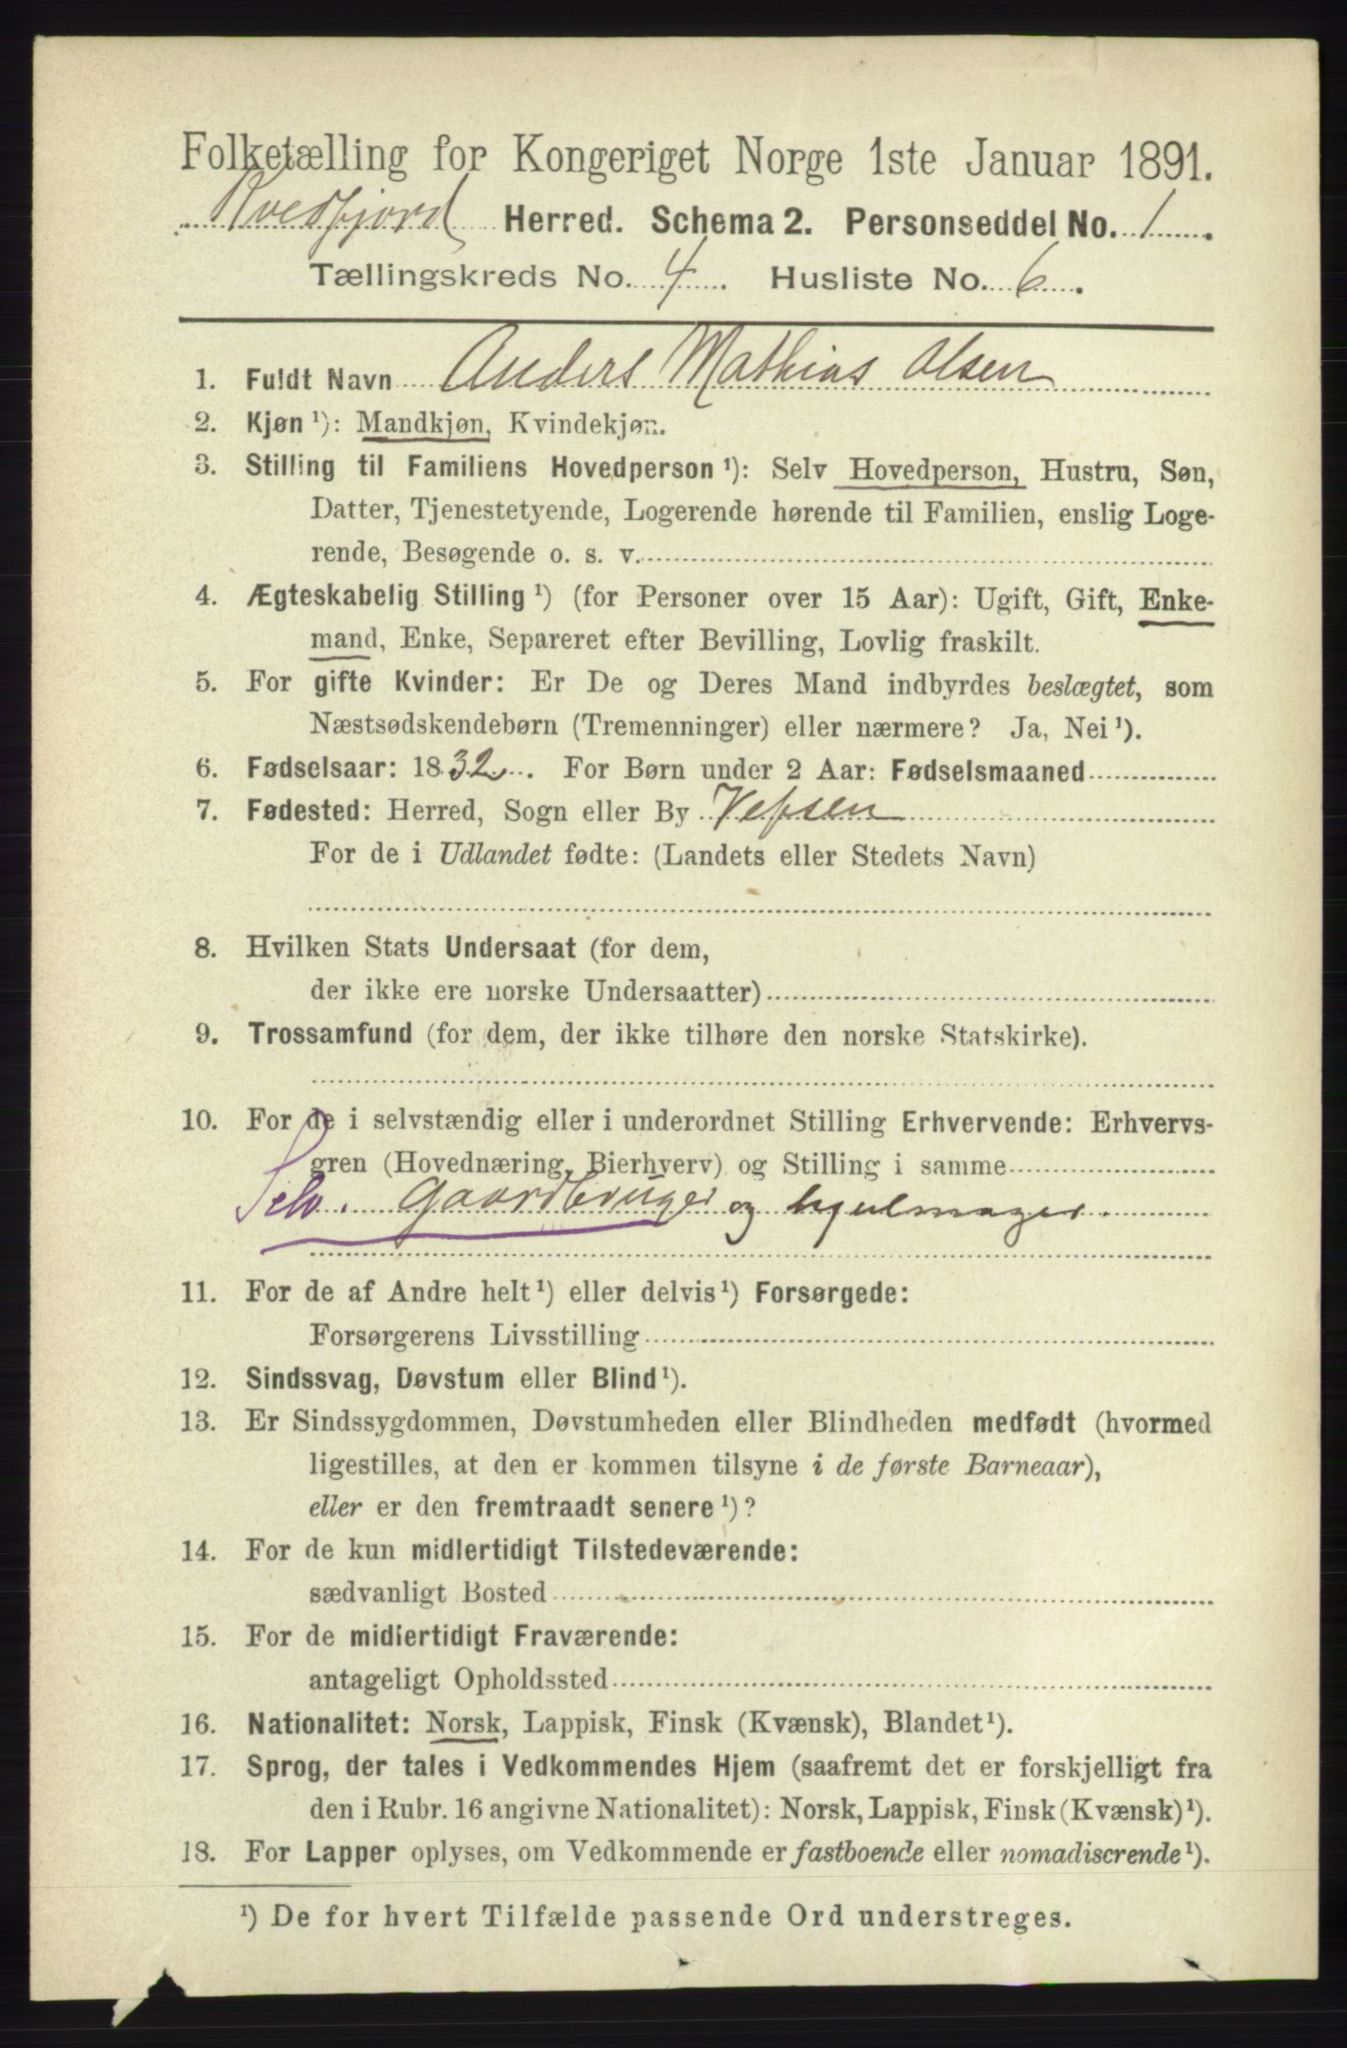 Folketælling for Kongeriget Norge 1ste Januar 1891.
Kvedfjord Herred. Schema 2. Personseddel No. 1
Tællingskreds No. 4. Husliste No. 6.
1. Fuldt Navn Anders Mathias Olsen
2. Kjøn ¹): Mandkjøn, Kvindekjøn.
3. Stilling til Familiens Hovedperson ¹): Selv Hovedperson, Hustru, Søn,
Datter, Tjenestetyende, Logerende hørende til Familien, enslig Loge-
rende, Besøgende o. s. v.
4. Ægteskabelig Stilling ¹) (for Personer over 15 Aar): Ugift, Gift, Enke-
mand, Enke, Separeret efter Bevilling, Lovlig fraskilt.
5. For gifte Kvinder: Er De og Deres Mand indbyrdes beslægtet, som
Næstsødskendebørn (Tremenninger) eller nærmere? Ja, Nei ¹).
6. Fødselsaar: 1832. For Børn under 2 Aar: Fødselsmaaned
7. Fødested: Herred, Sogn eller By Vefsen
For de i Udlandet fødte: (Landets eller Stedets Navn)
8. Hvilken Stats Undersaat (for dem,
der ikke ere norske Undersaatter)
9. Trossamfund (for dem, der ikke tilhøre den norske Statskirke).
10. For de i selvstændig eller i underordnet Stilling Erhvervende: Erhvervs-
gren (Hovednæring, Bierhverv) og Stilling i samme
Selv. Gaardbruger og hjulmager.
11. For de af Andre helt ¹) eller delvis ¹) Forsørgede:
Forsørgerens Livsstilling
12. Sindssvag, Døvstum eller Blind ¹).
13. Er Sindssygdommen, Døvstumheden eller Blindheden medfødt (hvormed
ligestilles, at den er kommen tilsyne i de første Barneaar),
eller er den fremtraadt senere ¹)?
14. For de kun midlertidigt Tilstedeværende:
sædvanligt Bosted
15. For de midlertidigt Fraværende:
antageligt Opholdssted
16. Nationalitet: Norsk, Lappisk, Finsk (Kvænsk), Blandet ¹).
17. Sprog, der tales i Vedkommendes Hjem (saafremt det er forskjelligt fra
den i Rubr. 16 angivne Nationalitet): Norsk, Lappisk, Finsk (Kvænsk) ¹).
18. For Lapper oplyses, om Vedkommende er fastboende eller nomadiserende ¹).
¹) De for hvert Tilfælde passende Ord understreges.